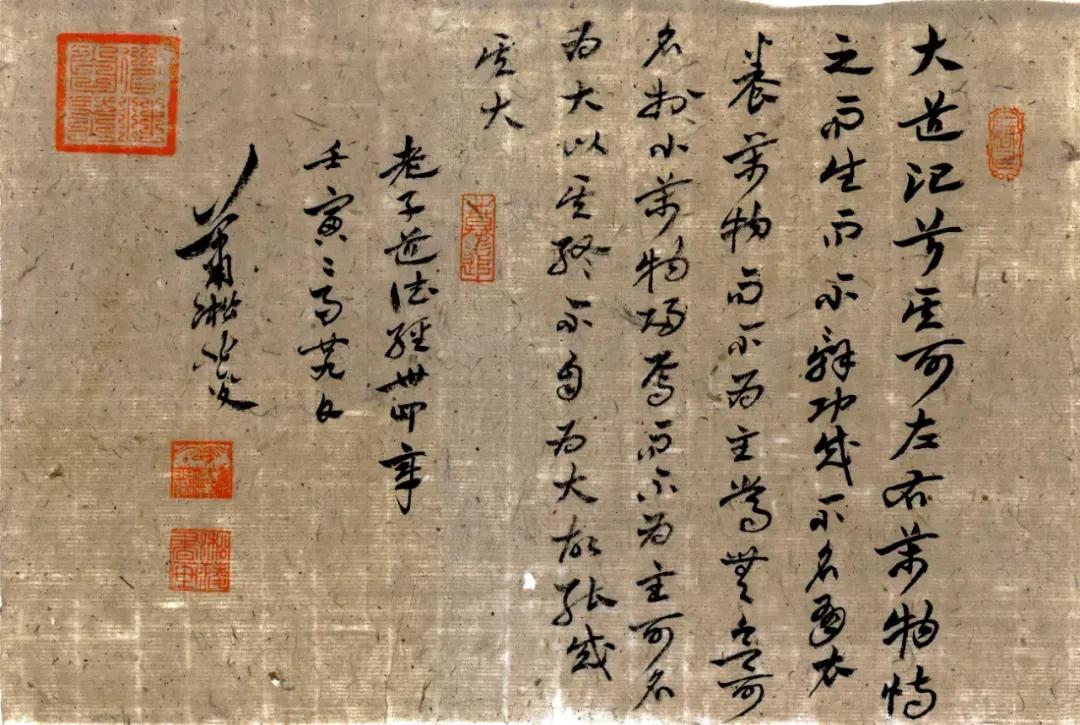 大道汜兮其可左右萬物恃
之而生而不辭功成不名有衣
養萬物而不為主常無欲可
名於小萬物歸焉而不為主可名
為大以其終不自為大故能成
其大
老子道德經卅四章
壬寅二月廿九日
蕭淞